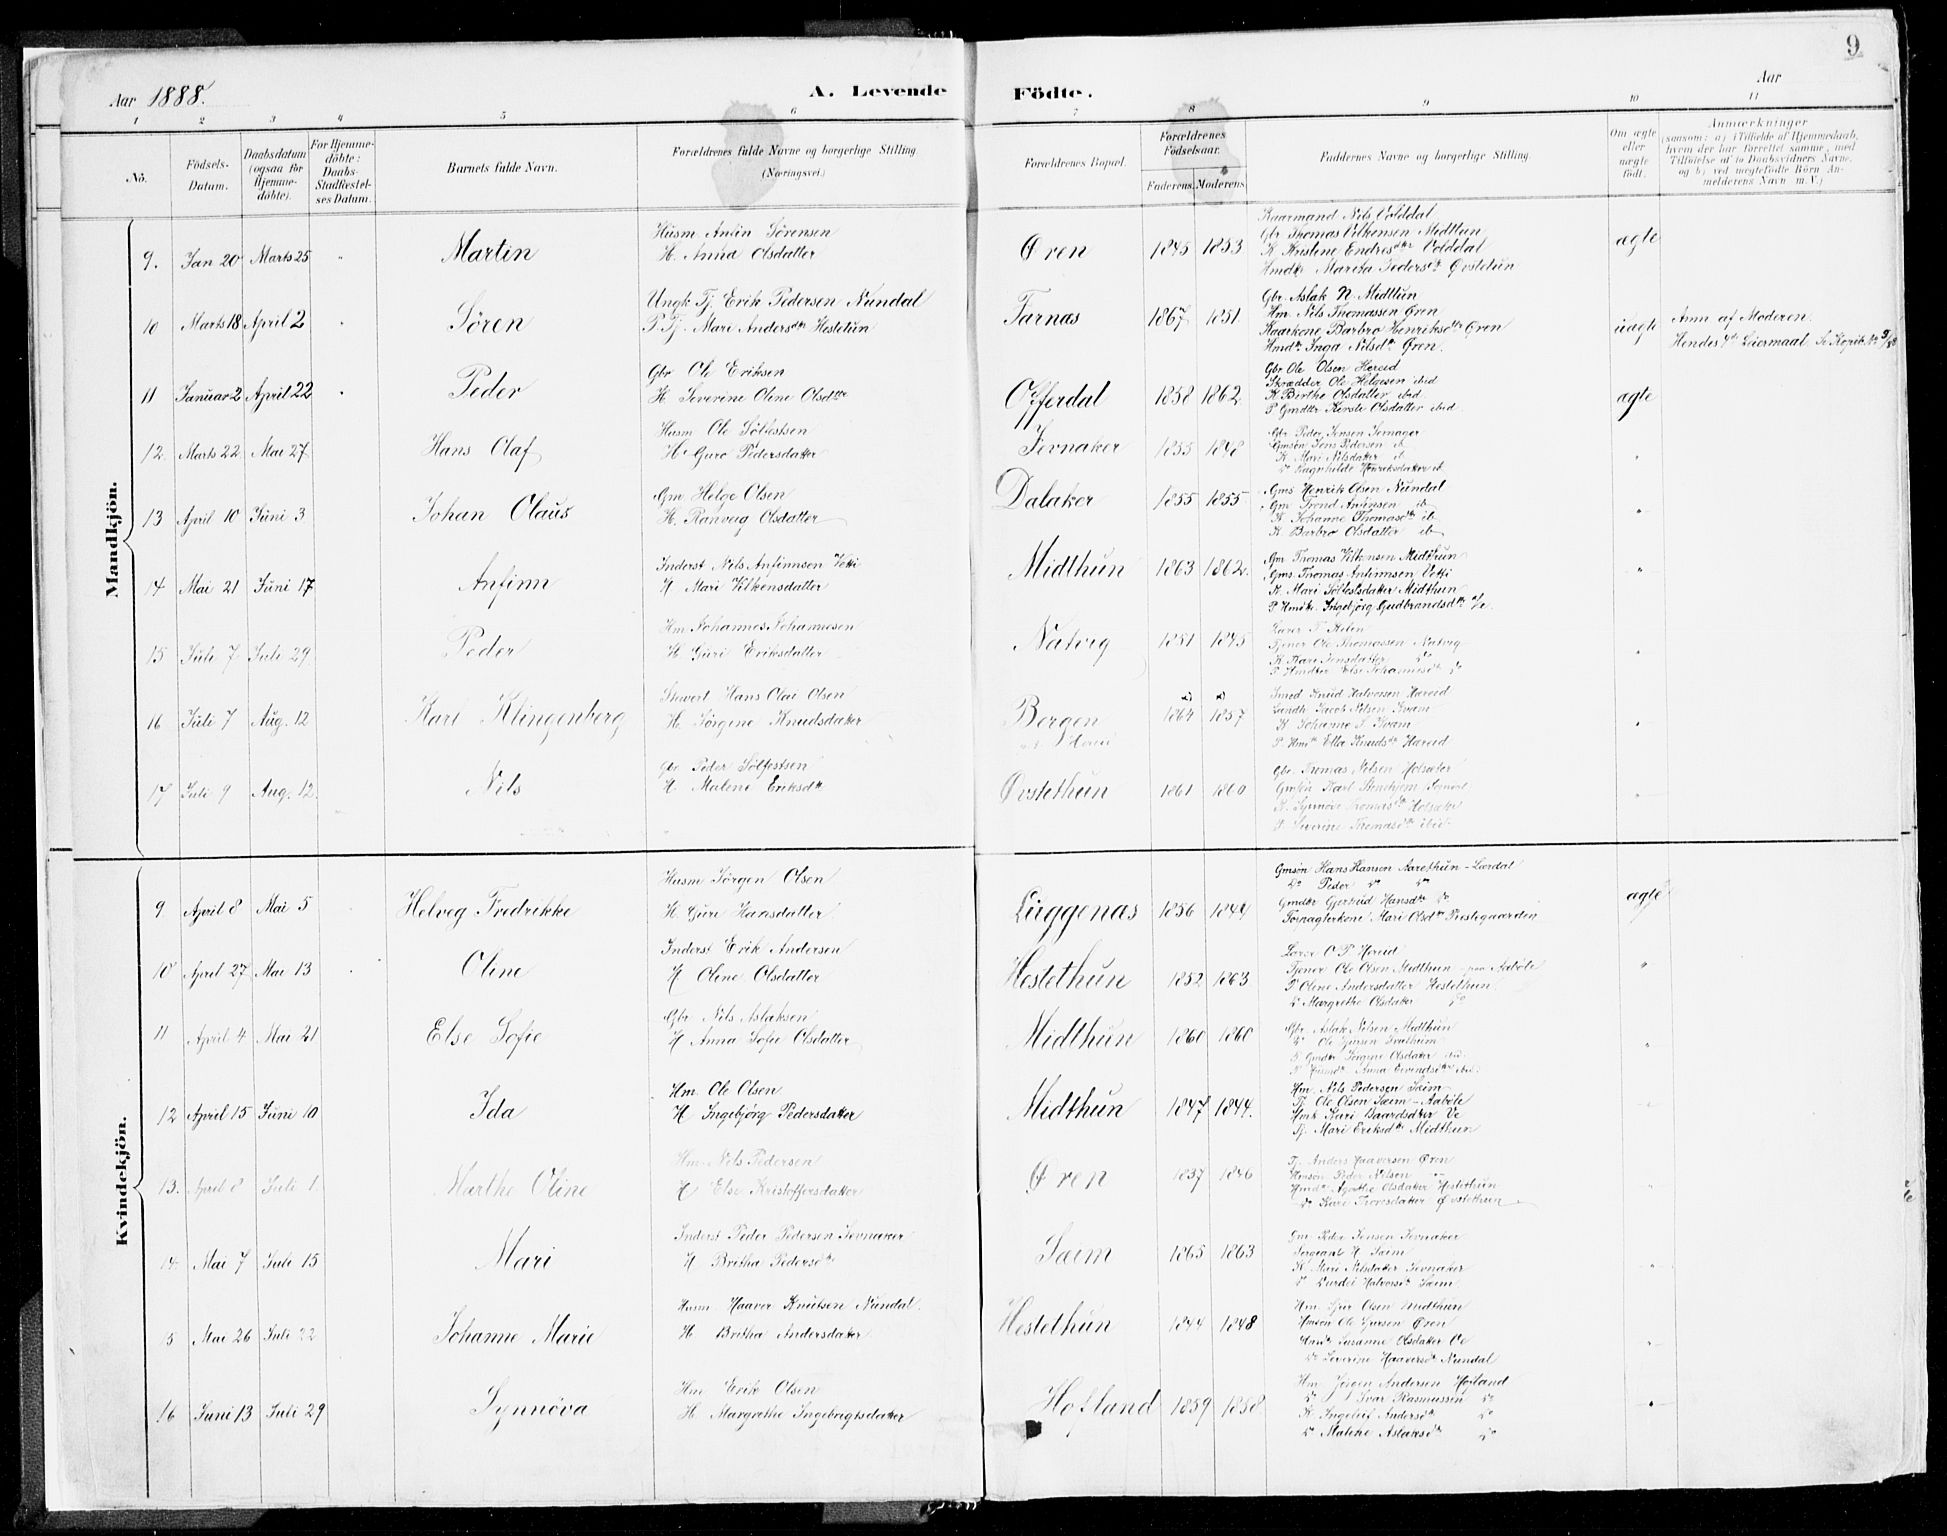 9
Aar 1888. A. Levende Födte. Aar
1 2 3 4 5 6 7 8 9 10 11
No. Födsels-Datum. Daabsdatum (ogsaa for Hjemme-döbte). For Hjemme-döbte: Daabs-Stadfæstel-ses Datum. Barnets fulde Navn. Forældrenes fulde Navne og borgerlige Stilling (Næringsvei.) Forældrenes Bopæl. Forældrenes Födselsaar. Faderens. Moderens. Faddernes Navne og borgerlige Stilling. Om ægte eller uægte födt. Anmærkninger (saasom: a) i Tilfælde af Hjemmedaab, hvem der har forrettet samme, med Tilföielse af to Daabsvidners Navne, og b) ved uegtefödte Börn An-melderens Navn m. V.)
Mandkjön.
9. Jan 20 Marts 25 " Martin Husm Anfin Sörensen
H. Anna Olsdatter Øren 1845 1853 Kaarmand Nils Volddal
Gbr Thomas Vilkensen Midttun
K Kristene Endresdtr Volddal
Hmdtr Marita Pedersdtr Øvstetun ægte
10 Marts 18 April 2 " Sören Ungk Tj. Erik Pedersen Nundal
P. Tj. Mari Andersdtr Hestetun Farnæs 1867 1851 Gbr. Aslak N. Midttun
Hm. Nils Thomassen Øren
Kaarkone Barbro Henriksdtr Øren
Hmdtr Inga Nilsdtr Øren. uægte Anm af Moderen.
Hendes 4de Leiermaal.
11 Januar 2 April 22 " Peder Gbr Ole Eriksen
H. Severine Oline Olsdtr Offerdal 1858 1862. Gbr Ole Olsen Hereid
Skrædder Ole Helgesen ibid
K Birthe Olsdatter ibid
P Gmdtr Kerste Olsdatter ibid. ægte
12. Marts 22 Mai 27 Hans Olaf Husm Ole Sölfestsen
H Guro Pedersdatter Jevnaker 1855 1848 Gbr Peder Jensen Jevnager
Gmsön Jens Pedersen ib
K Mari Nilsdatter ib
Do Ragnhilde Henriksdatter ib "
13 April 10 Juni 3 Johan Olaus Gm Helge Olsen
H. Ranveig Olsdatter Dalaker 1855 1855 Gms Henrik Olsen Nundal
Gm Trond Anfinsen ib
K. Johanne Thomasdtr ib
K Barbro Olsdatter ib "
14 Mai 21 Juni 17 Anfinn Inderst Nils Anfinnsen Vetti
H Mari Vilkensdatter Midthun 1863 1862. Gm Thomas Vilkensen Midthun
Gms Thomas Anfinnsen Vetti
K. Mari Sölfestsdatter Midthun
P. Hmdtr. Ingebjörg Gudbrandsdtr Ve. "
15 Juli 7 Juli 29 Peder Hm Johannes Johannesen
H Guri Eriksdatter Natvig 1851 1845 Lærer T. Helen
Tjener Ole Thomassen Natvig
K Kari Jensdatter do
P Hmdtr Else Johannesdtr do "
16 Juli 7 Aug. 12 Karl Klingenberg Stuert Hans Olai Olsen
H. Jörgine Knudsdatter Bergen 1864 1857 Smed Knud Halvorsen Hæreid
Landh. Jacob Nilsen Kvam
K Johanne J. Kvam
P. Hmdtr Ella Knudsdtr Hæreid "
17 Juli 9 Aug. 12 Nils Gbr Peder Sölfestsen
H Malene Eriksdtr Øvstethun 1861 1860 Gbr. Thomas Nilsen Holsæter
K. Synnöve Thomasdtr Holsæter
P. Severine Thomasdtr ibid. "
Kvindekjön.
9 April 8 Mai 5 Helveg Fredrikke Husm Jörgen Olsen
H. Guri Hansdatter Luggenæs 1856 1844 Gmsön Hans Hansen Aarethun-Lærdal
Do Peder do do
Gmdtr Gjertrud Hansdtr do
Forpagterkone Mari Olsdtr Prestegaarden ægte
10 April 27 Mai 13 " Oline Inderst Erik Andersen
H Oline Olsdatter Hestethun 1852 1863 Lærer O P Hereid
Tjener Ole Olsen Midthun - paa Aaböle
P Olene Andersdatter Hestethun
Do Margrethe Olsdatter do "
11 April 4 Mai 21 Else Sofie Gbr Nils Aslaksen
H Anna Sofie Olsdatter Midthun 1860 1860 Gbr. Aslak Nilsen Midthun
P Gmdtr Jörgine Olsdatter ibd.
P. Husmdtr Anna Eivindsdtr ibd. "
12 April 15 Juni 10 Ida Hm. Ole Olsen
H Ingebjörg Pedersdatter Midthun 1847 1844. Hm. Nils Pedersen Sæim
Tj. Ole Olsen Sæim - Aaböle
Hmk Kari Baardsdtr Ve
Tj. Mari Eriksdtr Midthun "
13. April 8 Juli 1 Marthe Oline Hm. Nils Pedersen
H Else Kristoffersdatter Øren 1837 1846 Tj. Anders Haaversen Øren
Hmsön Peder Nilsen "
Hmdtr Agathe Olsdatter Hestethun
Do Kari Thoresdatter Øvstethun "
14. Mai 7 Juli 15 Mari Inderst Peder Pedersen Jevnaker
H Britha Pedersdtr Sæim 1865 1863 Gm Peder Jensen Jevnaker
Sergeant H. Sæim
K Mari Nilsdatter Jevnaker
Do Durdei Halvorsdtr Sæim. "
5 Mai 26 Juli 22 Johanne Marie Husm Haaver Knutsen Nundal.
H Britha Andersdatter Hestethun 1844 1848 Hm. Sjur Olsen Midthun
Hmsön Ole Sjursen Øren
Hmdtr Susanne Olsdatter Ve
Do Severine Haaversdtr Nundal "
16 Juni 13 Juli 29 Synnöva Hm Erik Olsen
H. Margrethe Ingebrigtsdatter Hofland 1859 1858 Hm Jörgen Andersen Hofland
Do Ivar Rasmussen do
K Ingeleif Andersdtr do
Do Malene Aslaksdtr do "